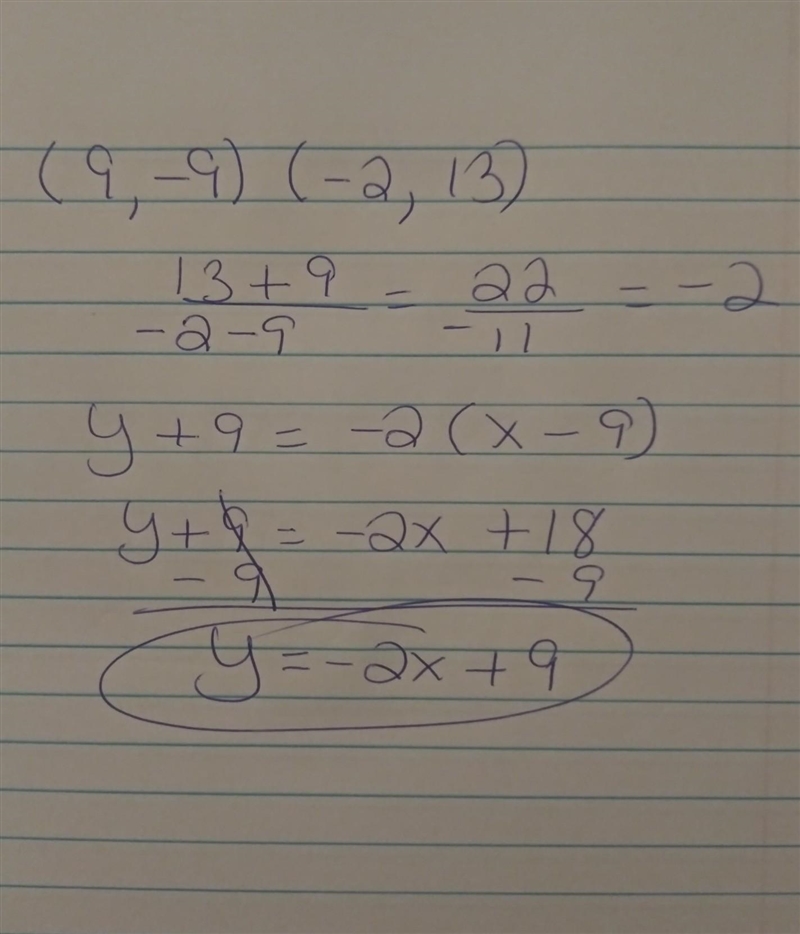 (9, -9) (-2, 13)
13 + 9 = 22 = -2
-2 - 9 -11
y + 9 = -2 (x - 9)
y + 9 = -2x + 18
- 9 - 9
y = -2x + 9